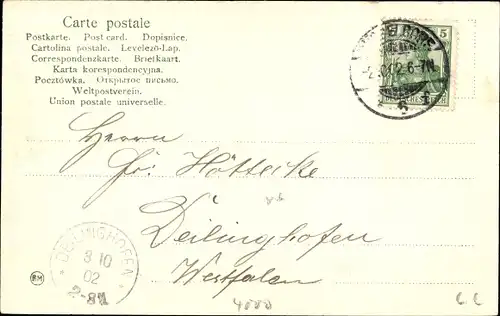 Carte postale
Postkarte. Post card. Dopisnice.
Cartolina postale. Levelező-Lap.
Correspondenzkarte. Briefkaart.
Karta korespondencyjna.
Pocztówka. Открытое письмо.
Weltpostverein.
Union postale universelle.
5
6-7N
Herrn
Fr: Höttecke
Deilinghofen
Westfalen
DEILINGHOFEN
3 10
02
2-8N
BM
4000